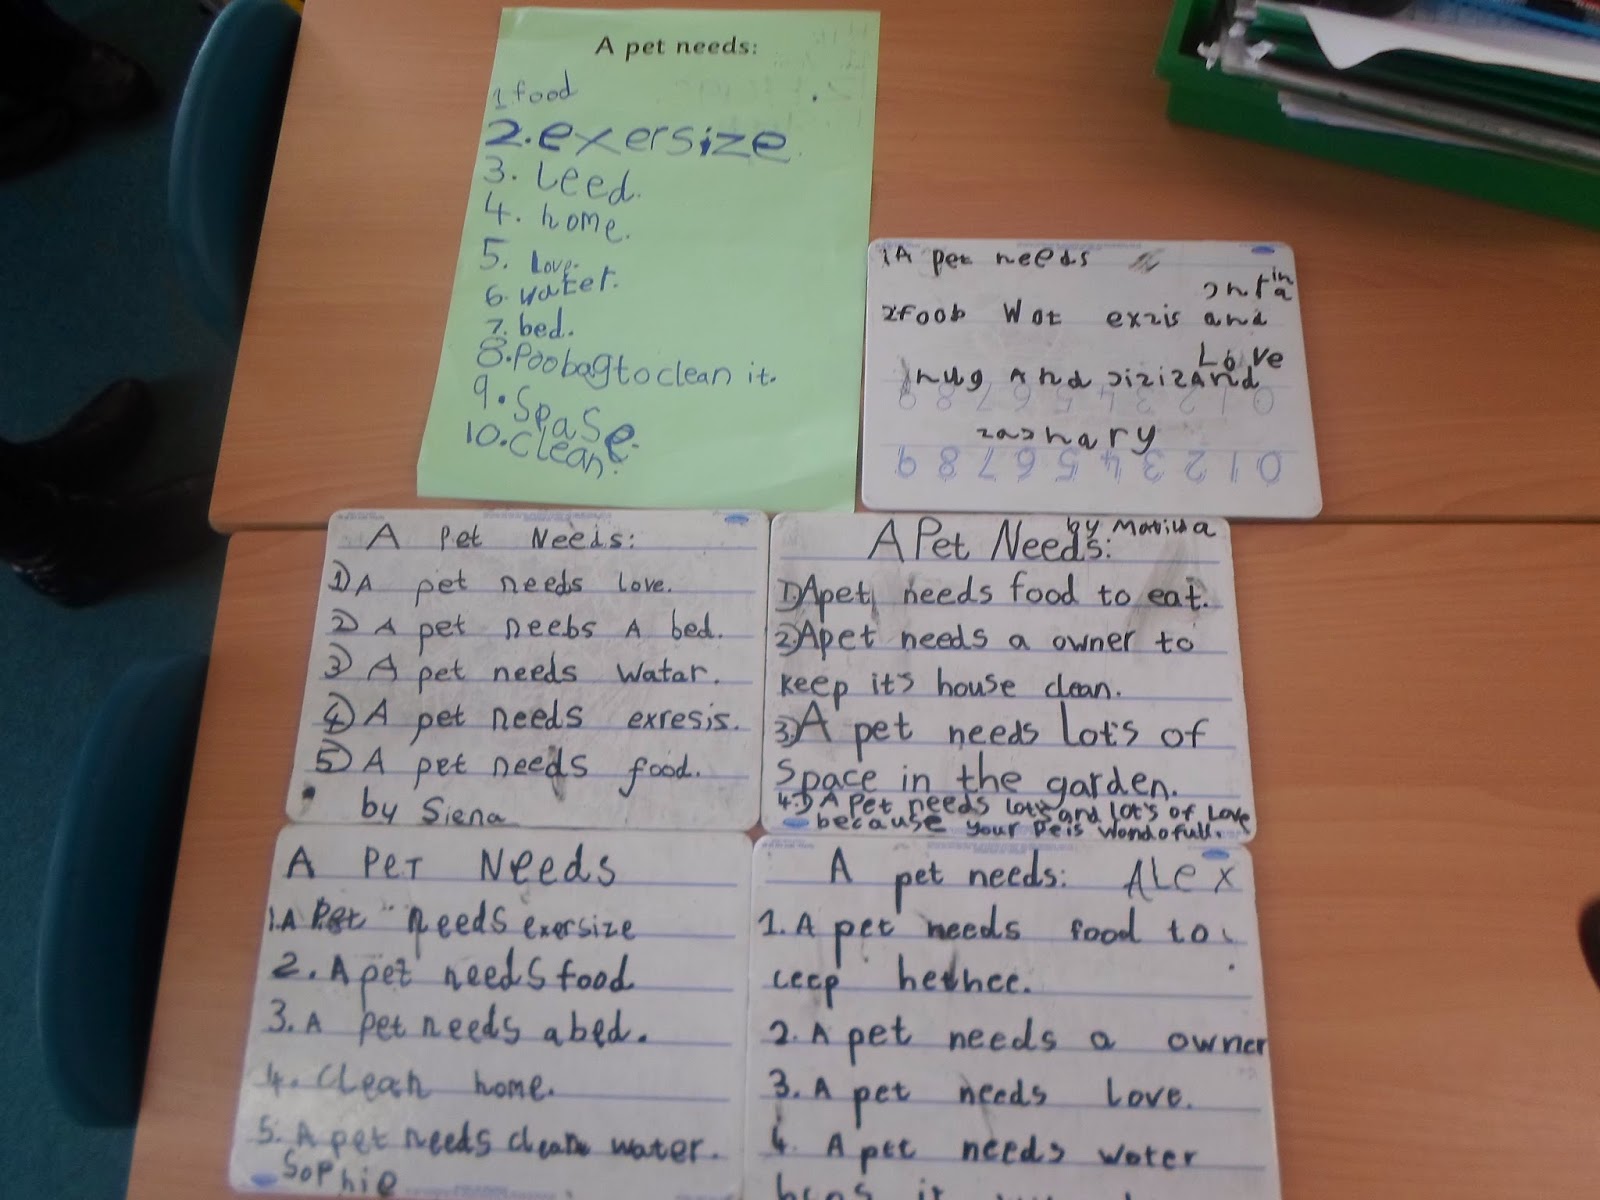 A pet needs:
1 food
2. exersize
3. Leed.
4. home.
5. Love.
6. water.
7. bed.
8. Poo bag to clean it.
9. Spase.
10. clean.
1A pet needs
in
2foob Wot exzis and
Love
hug And
zachary
0 1 2 3 4 5 6 7 8 9
0 1 2 3 4 5 6 7 8 9
A Pet Needs:
1) A pet needs love.
2) A pet neebs A bed.
3) A pet needs Watar.
4) A pet needs exresis.
5) A pet needs food.
by Siena
by
A Pet Needs:
1) A pet needs food to eat.
2) A pet needs a owner to
keep it's house clean.
3) A pet needs Lot's of
Space in the garden.
4.) A Pet needs Lot's and Lot's of Love
because your Pe is wondofull.
A PeT Needs
1. A Pet needs exersize
2. A pet needs food
3. A pet needs a bed.
4. Clean home.
5. A pet needs clean water.
Sophie
A pet needs: ALex
1. A pet needs food to
ceep helthee.
2. A pet needs a owner
3. A pet needs Love.
4. A pet needs woter